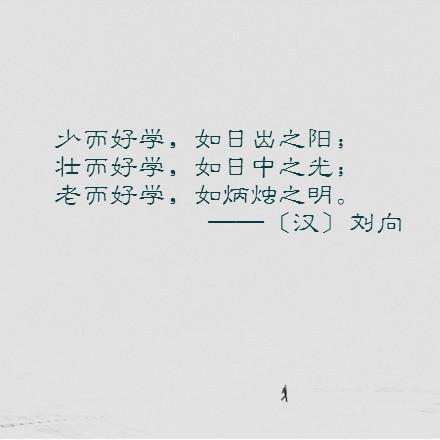 少而好学，如日出之阳；
壮而好学，如日中之光；
老而好学，如炳烛之明。
——〔汉〕刘向